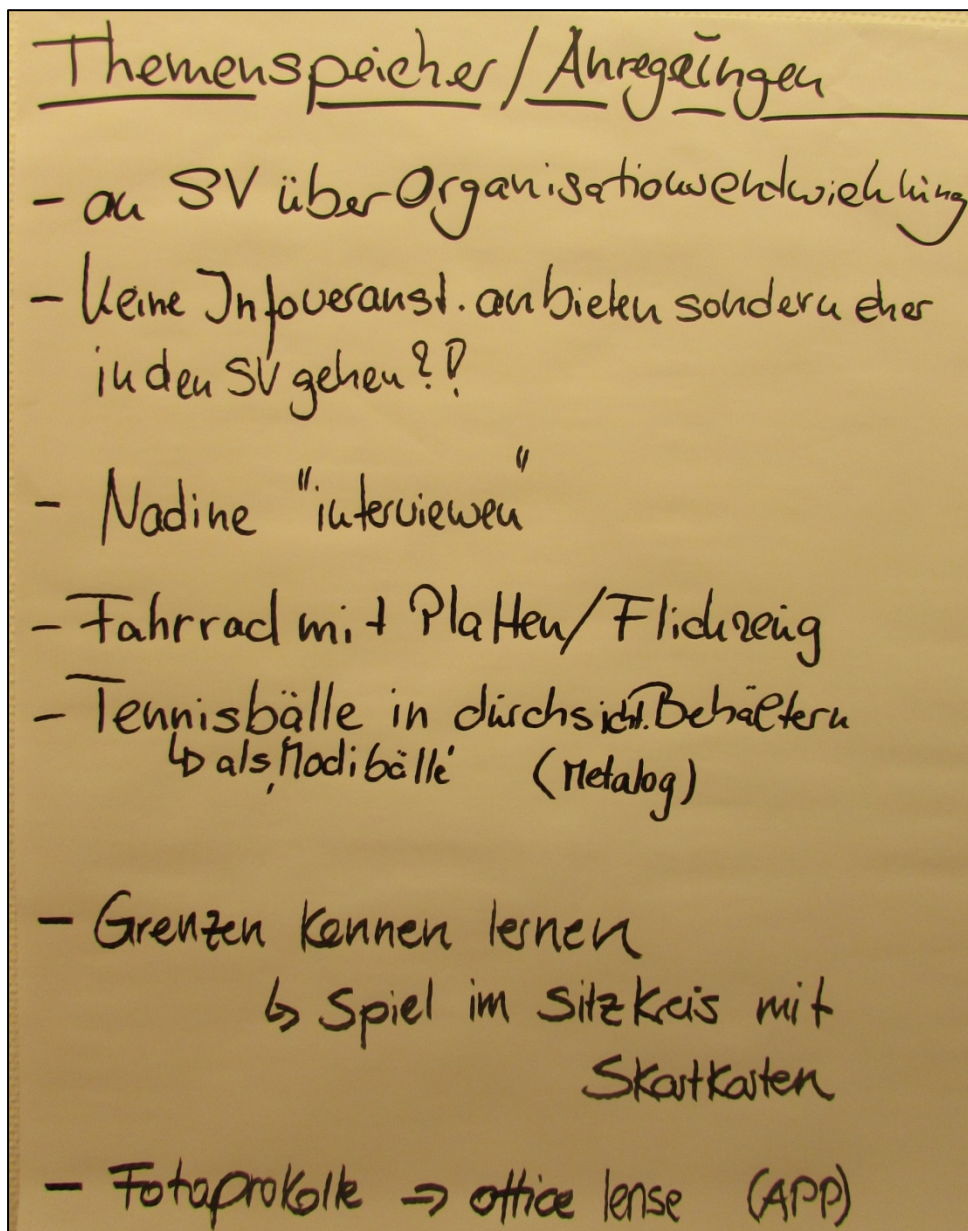 Themenspeicher / Anregungen
- an SV über Organisationsentwicklung
- Keine Infoveranst. anbieten sondern eher
in den SV gehen??
- Nadine "interviewen"
- Fahrrad mit Platten/Flickzeug
- Tennisbälle in durchsicht. Behältern
↳ als "Modibälle" (Metalog)
- Grenzen kennen lernen
↳ Spiel im Sitzkreis mit
Skatkarten
- Fotoprokolle ⇒ office lense (APP)